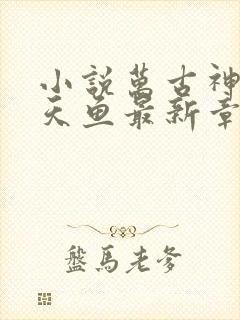 小說萬古神
天魚最新章
盤馬老爹